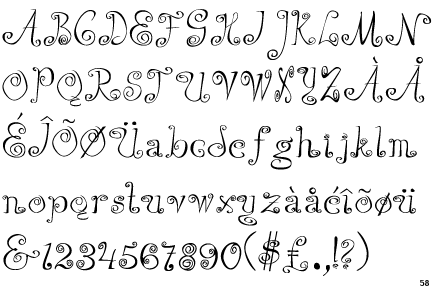 ABCDEFGHIJKLMN
OPQRSTUVWXYZÀÅ
ÉÎÕØÜabcdefghijklm
nopqrstuvwxyzàåéîõøü
&1234567890($£.,!?)
58